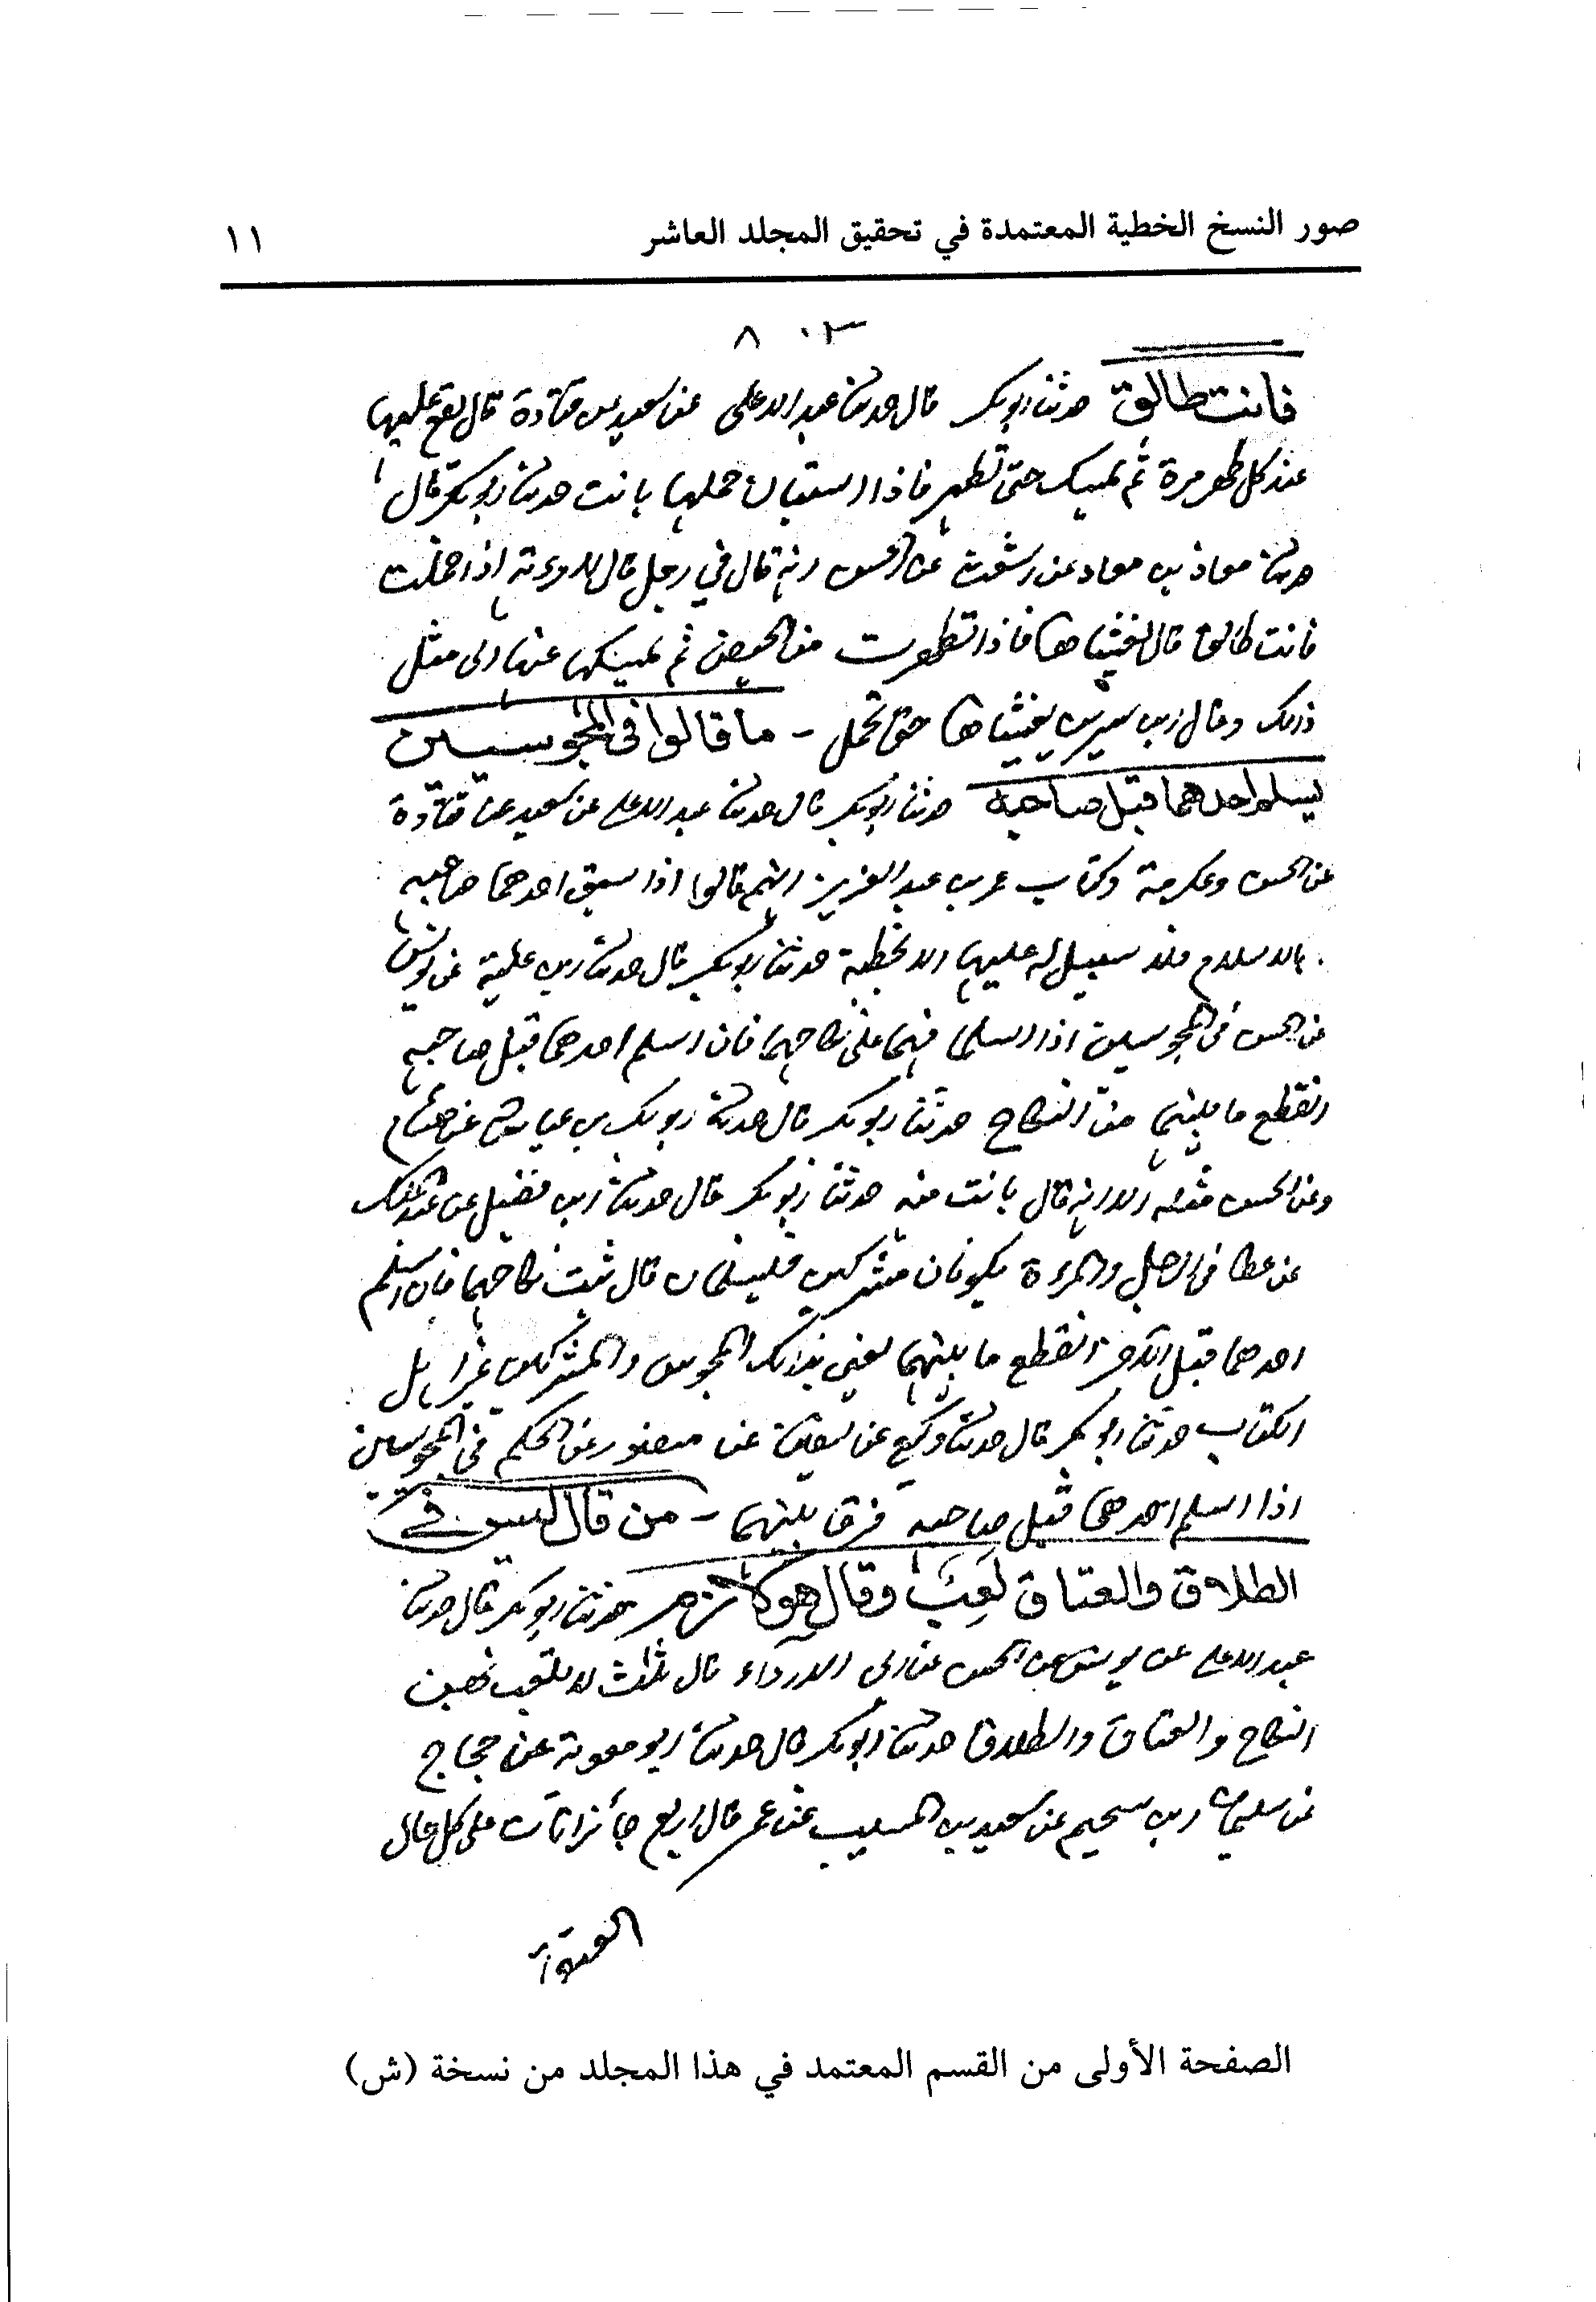 صور النسخ الخطية المعتمدة في تحقيق المجلد العاشر ١١
فانت طالق حدثنا ابو بكر قال حدثنا عبد الاعلى عن سعيد عن قتادة قال يقع عليها
عند كل طهر مرة ثم يمسك حتى تطهر فاذا استبان حملها بانت حدثنا ابو بكر قال
حدثنا معاذ بن معاذ عن اشعث عن الحسن انه قال في رجل قال لامرءته اذا حملت
فانت طالق قال يغشاها فاذا تطهرت من الحيض ثم يمسكها عنها الى مثل
ذلك وقال ابن سيرين يغشاها حتى تحمل - ما قالوا فى المجوسيين
يسلم احدهما قبل صاحبه حدثنا ابو بكر قال حدثنا عبد الاعلى عن سعيد عن قتادة
عن الحسن وعكرمة وكتاب عمر بن عبد العزيز انهم قالوا اذا سبق احدهما صاحبه
بالاسلام فلا سبيل له عليها الا بخطبة حدثنا ابو بكر قال حدثنا ابن علية عن يونس
عن الحسن فى المجوسيين اذا اسلما فهما على نكاحهما فان اسلم احدهما قبل صاحبه
انقطع ما بينهما من النكاح حدثنا ابو بكر قال حدثنا ابو بكر بن عياش عن هشام
وعن الحسن مثله الا انه قال بانت منه حدثنا ابو بكر قال حدثنا ابن فضيل عن عبد الملك
عن عطا فى الرجل والمرءة يكونان مشركين فيسلمان قال ثبت نكاحهما فان اسلم
احدهما قبل الآخر انقطع ما بينهما يعنى بذلك المجوس والمشركين غير اهل
الكتاب حدثنا ابو بكر قال حدثنا وكيع عن سفيان عن منصور عن الحكم فى المجوسيين
اذا اسلم احدهما قبل صاحبه فرق بينهما - من قال ليس في
الطلاق والعتاق لعب وقال هو لازم حدثنا ابو بكر قال حدثنا
عبد الاعلى عن يونس عن الحسن عن ابى الدرداء قال ثلاث لا يلعب بهن
النكاح والعتاق والطلاق حدثنا ابو بكر قال حدثنا ابو معوية عن حجاج
عن سليمان بن سحيم عن سعيد بن المسيب عن عمر قال اربع جائزات على كل حال
العتق
الصفحة الأولى من القسم المعتمد في هذا المجلد من نسخة (ش)